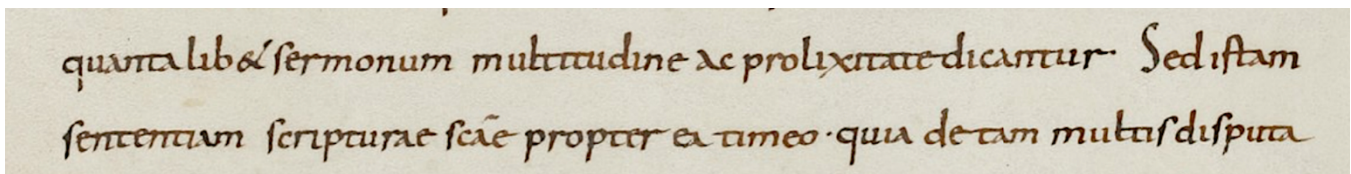 quanta lib& sermonum multitudine ac prolixitate dicantur· Sed istam
sententiam scripturae scāe propter ea timeo· quia de tam multis disputa